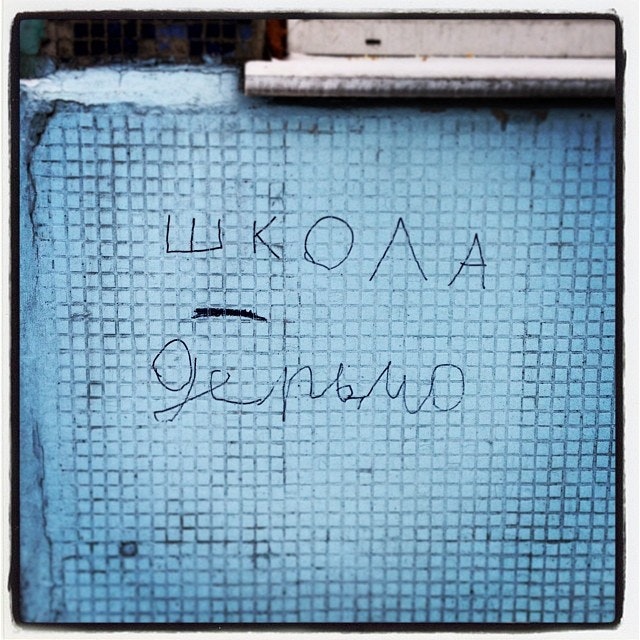 ШКОЛА
—
дерьмо